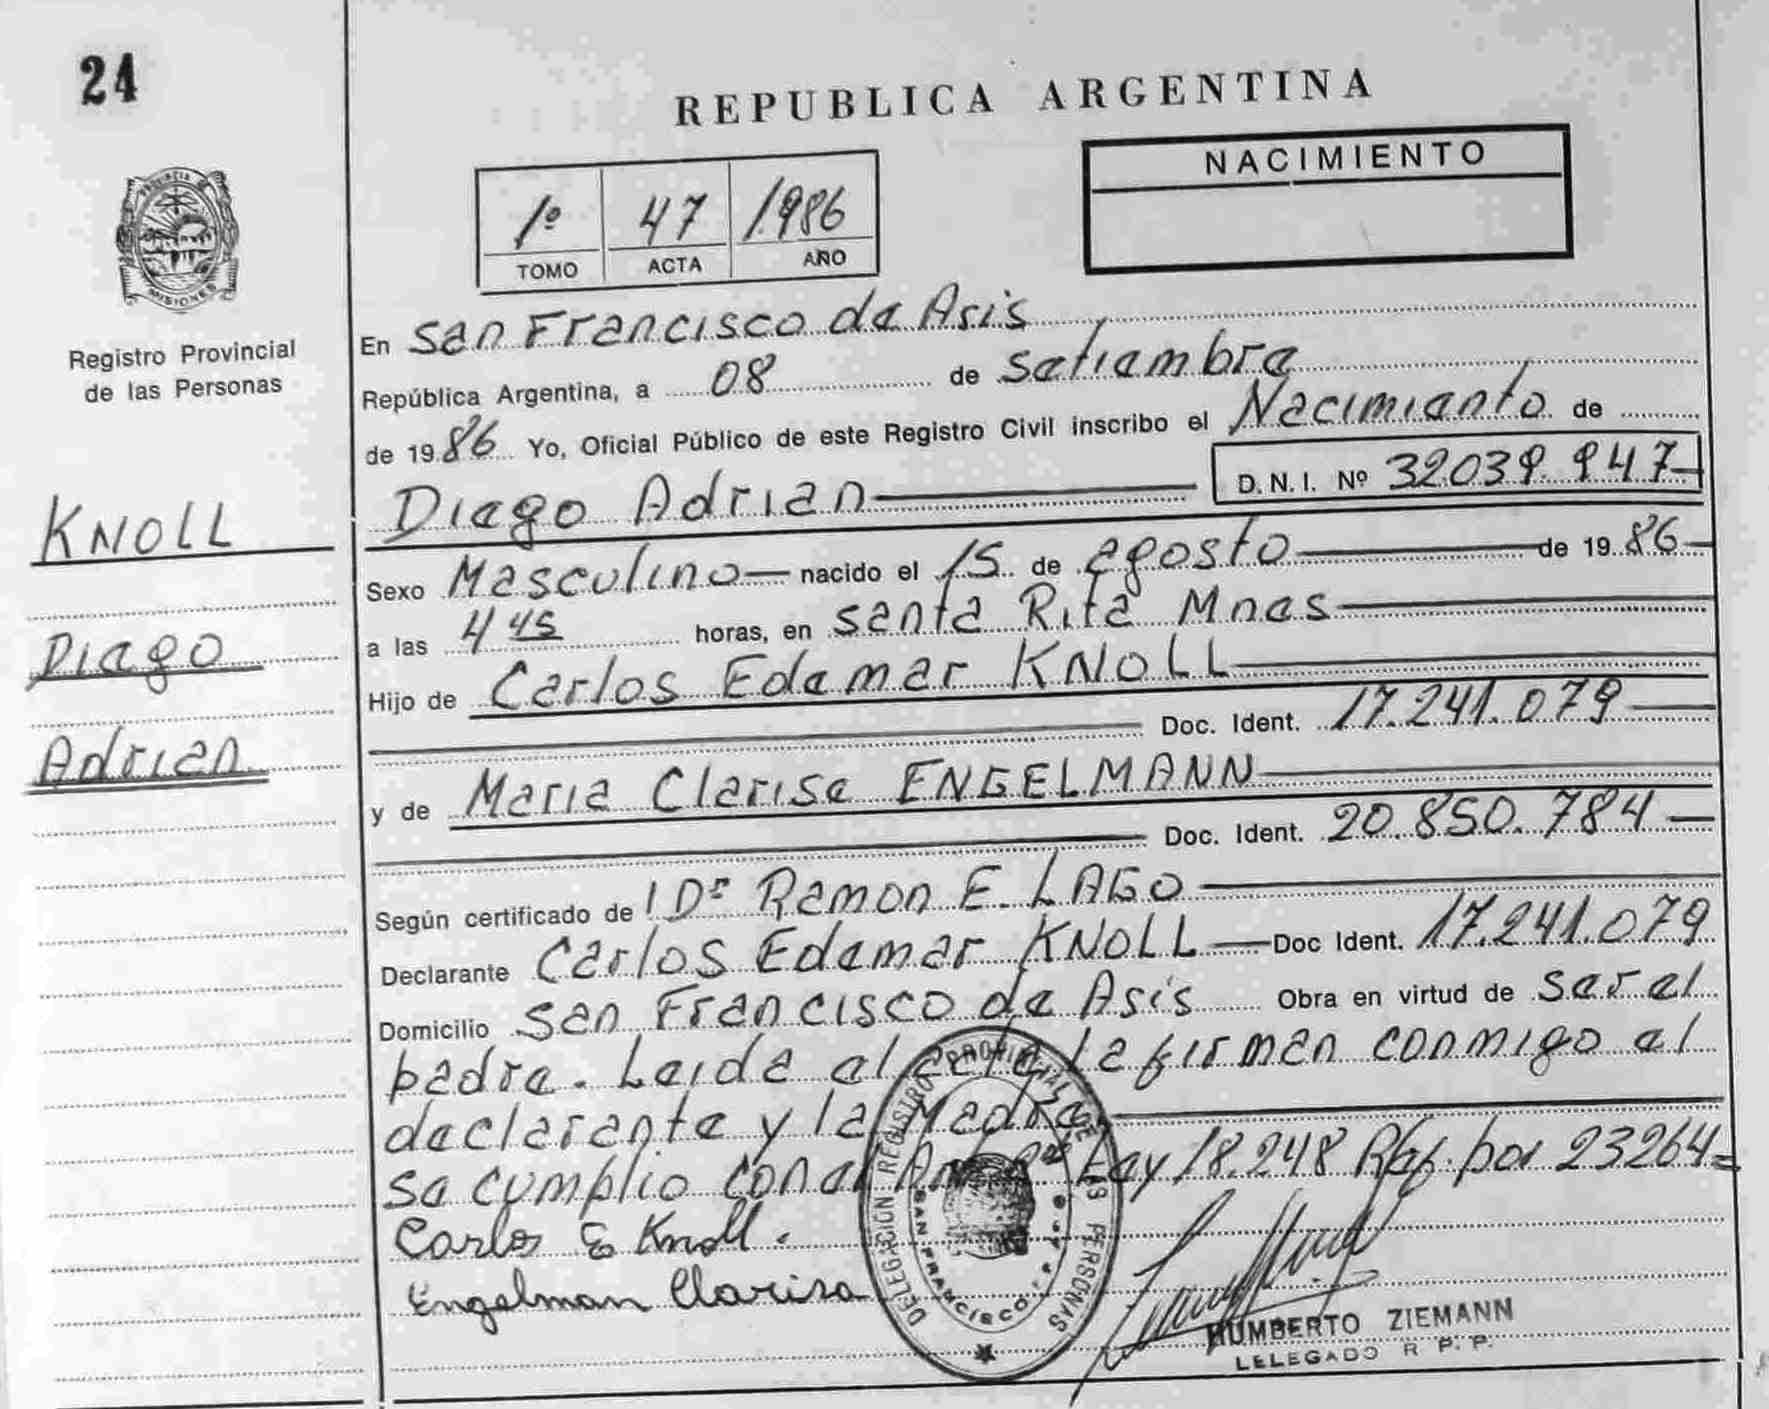 24
REPUBLICA ARGENTINA
NACIMIENTO
1º 47 1986
TOMO ACTA AÑO
PROVINCIA DE
MISIONES
Registro Provincial
de las Personas
KNOLL
Diego
Adrian
En San Francisco de Asis
República Argentina, a 08 de setiembre
de 1986 Yo, Oficial Público de este Registro Civil inscribo el Nacimiento de
Diego Adrian D.N.I. Nº 32039.947
Sexo Masculino nacido el 15 de agosto de 1986
a las 4 45 horas, en Santa Rita Mnes
Hijo de Carlos Edemar KNOLL
Doc. Ident. 17.241.079
y de Maria Clarise ENGELMANN
Doc. Ident. 20.850.784
Según certificado de Dr Ramon E. LAGO
Declarante Carlos Edemar KNOLL Doc Ident. 17.241.079
Domicilio San Francisco de Asís Obra en virtud de ser el
padre. Leida el acta, la firman conmigo el
declarante y la Madre
se cumplio con el Ley 18.248 Ref. por 23264
Carlos E Knoll.
Engelman Clarisa
DELEGACION REGISTRO PROVINCIAL DE LAS PERSONAS
SAN FRANCISCO
HUMBERTO ZIEMANN
LELEGADO R P. P.